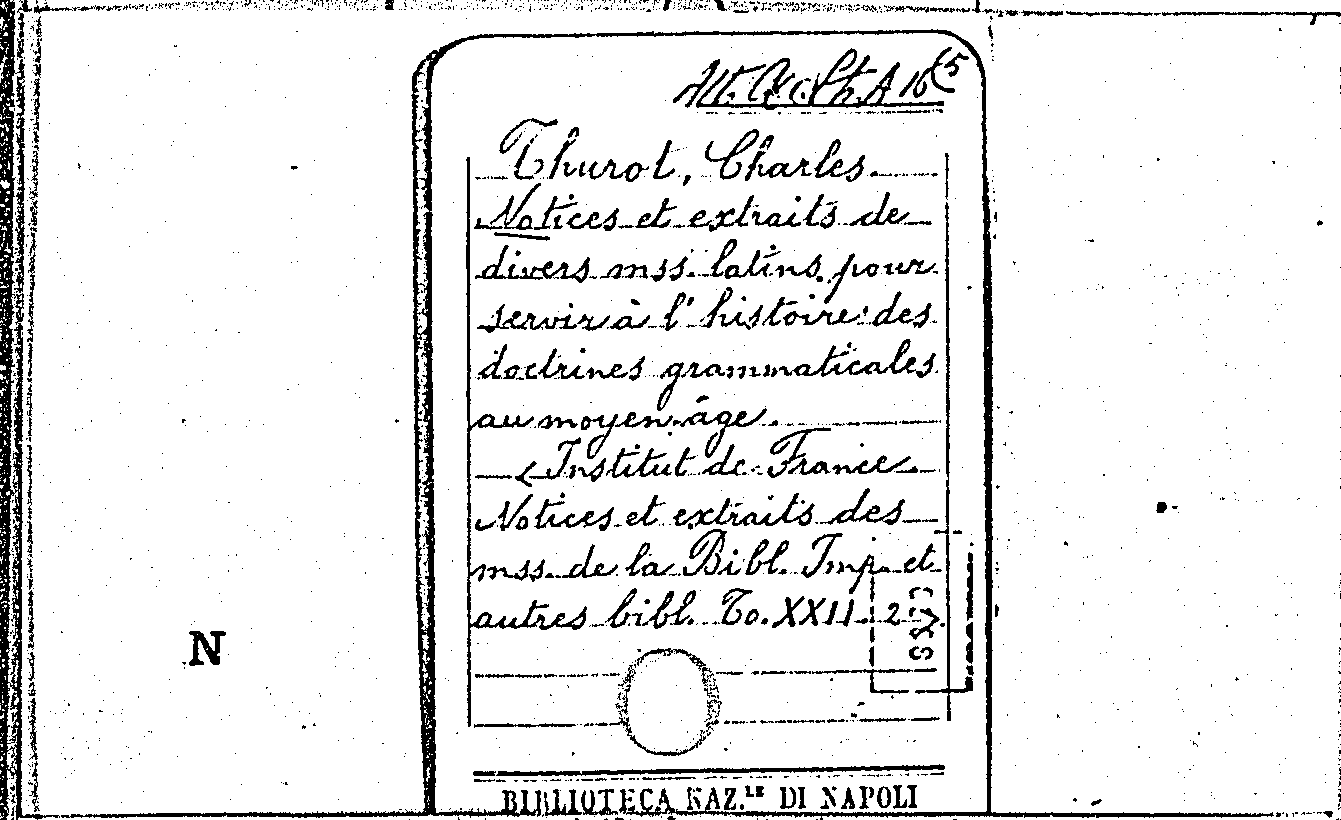 A 16 (5
Thurot, Charles.
Notices et extraits de
divers mss. latins pour
servir à l'histoire des
doctrines grammaticales
au moyen-âge.
(Institut de France.
Notices et extraits des
mss. de la Bibl. Imp. et
autres bibl. To. XXII. 2
N
BIBLIOTECA NAZ.LE DI NAPOLI